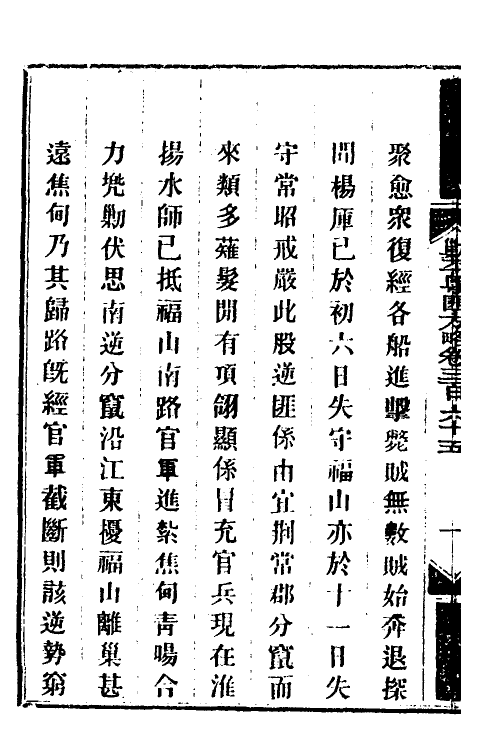 聚愈衆復經各船進擊斃賊無數賊始奔退探
聞楊厙已於初六日失守福山亦於十一日失
守常昭戒嚴此股逆匪係由宜荆常郡分竄而
來類多薙髮間有項翎顯係冒充官兵現在淮
揚水師已抵福山南路官軍進紮焦甸靑暘合
力兠勦伏思南逆分竄沿江東擾福山離巢甚
遠焦甸乃其歸路旣經官軍截斷則該逆勢窮
匪方略卷三百六十五
一